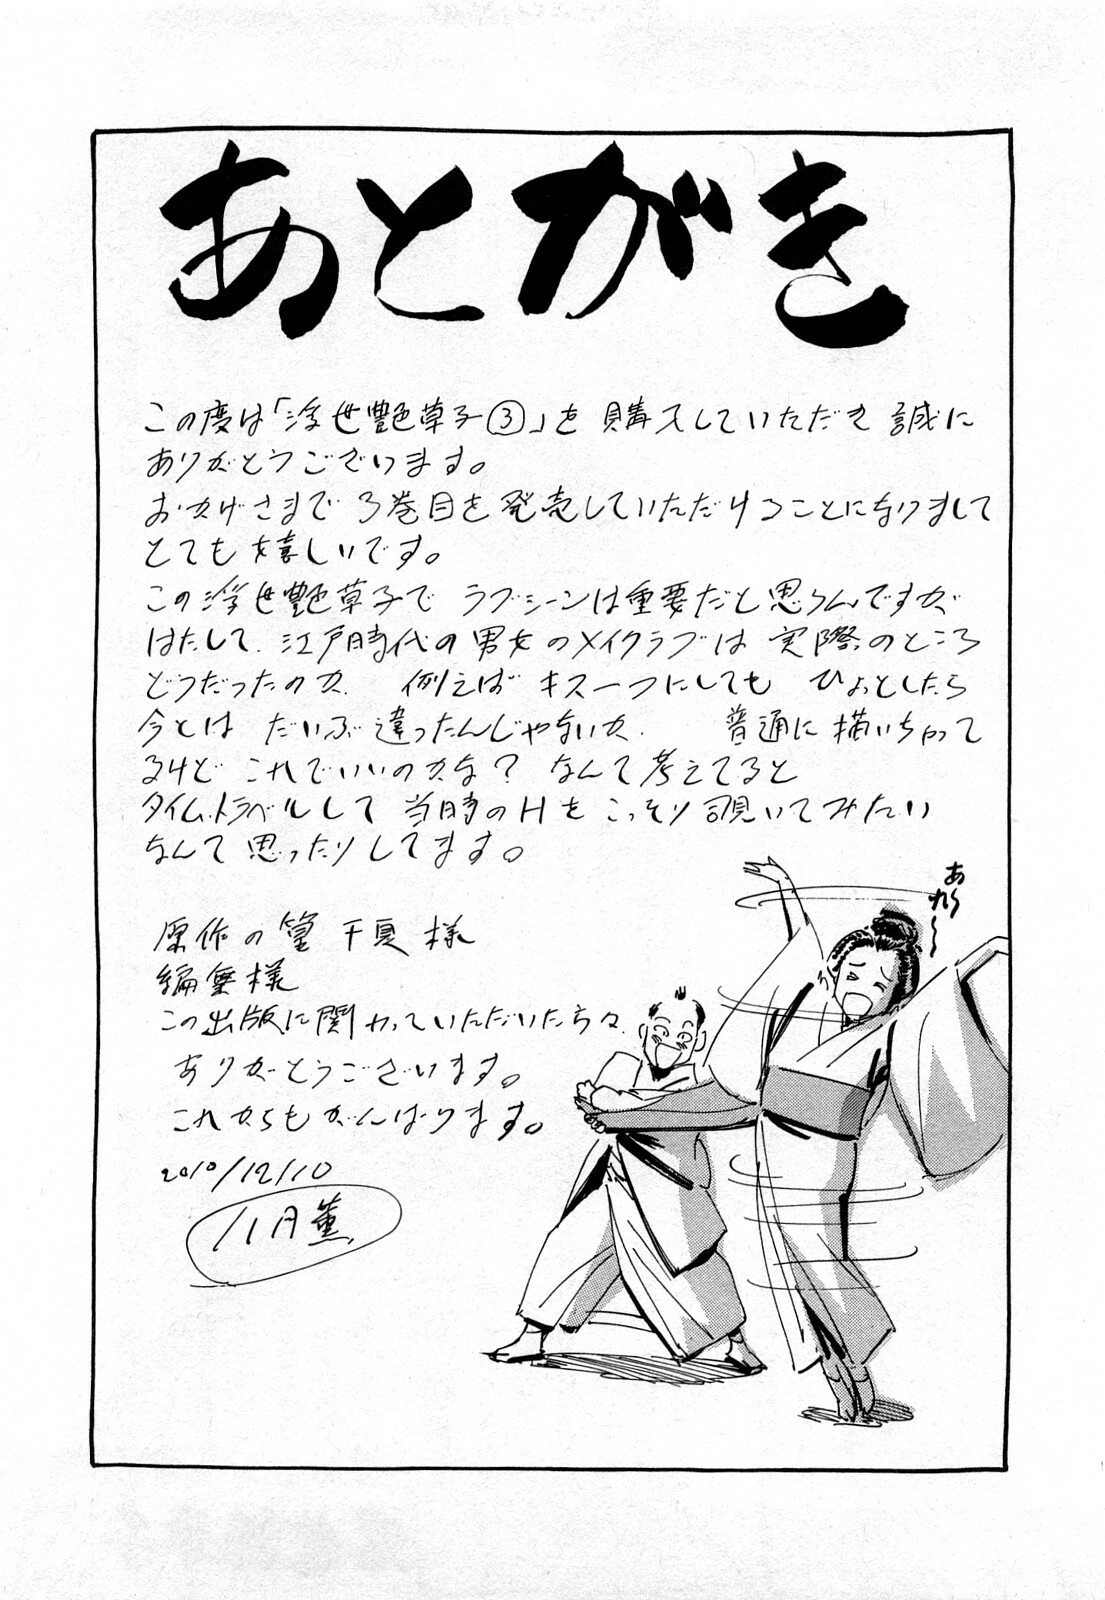 あとがき
この度は「浮世艶草子③」を購入していただき誠に
ありがとうございます。
おかげさまで3巻目を発売していただけることになりまして
とても嬉しいです。
この浮世艶草子でラブシーンは重要だと思うんですが
はたして江戸時代の男女のメイクラブは実際のところ
どうだったのか 例えばキス一つにしてもひょっとしたら
今とはだいぶ違ったんじゃないか 普通に描いちゃって
るけどこれでいいのかな？なんて考えてると
タイムトラベルして当時のHをこっそり覗いてみたい
なんて思ったりしてます。
あれ〜
原作の篁千夏様
編集様
この出版に関わっていただいた方々
ありがとうございます。
これからもがんばります。
2010/12/10
八月薫